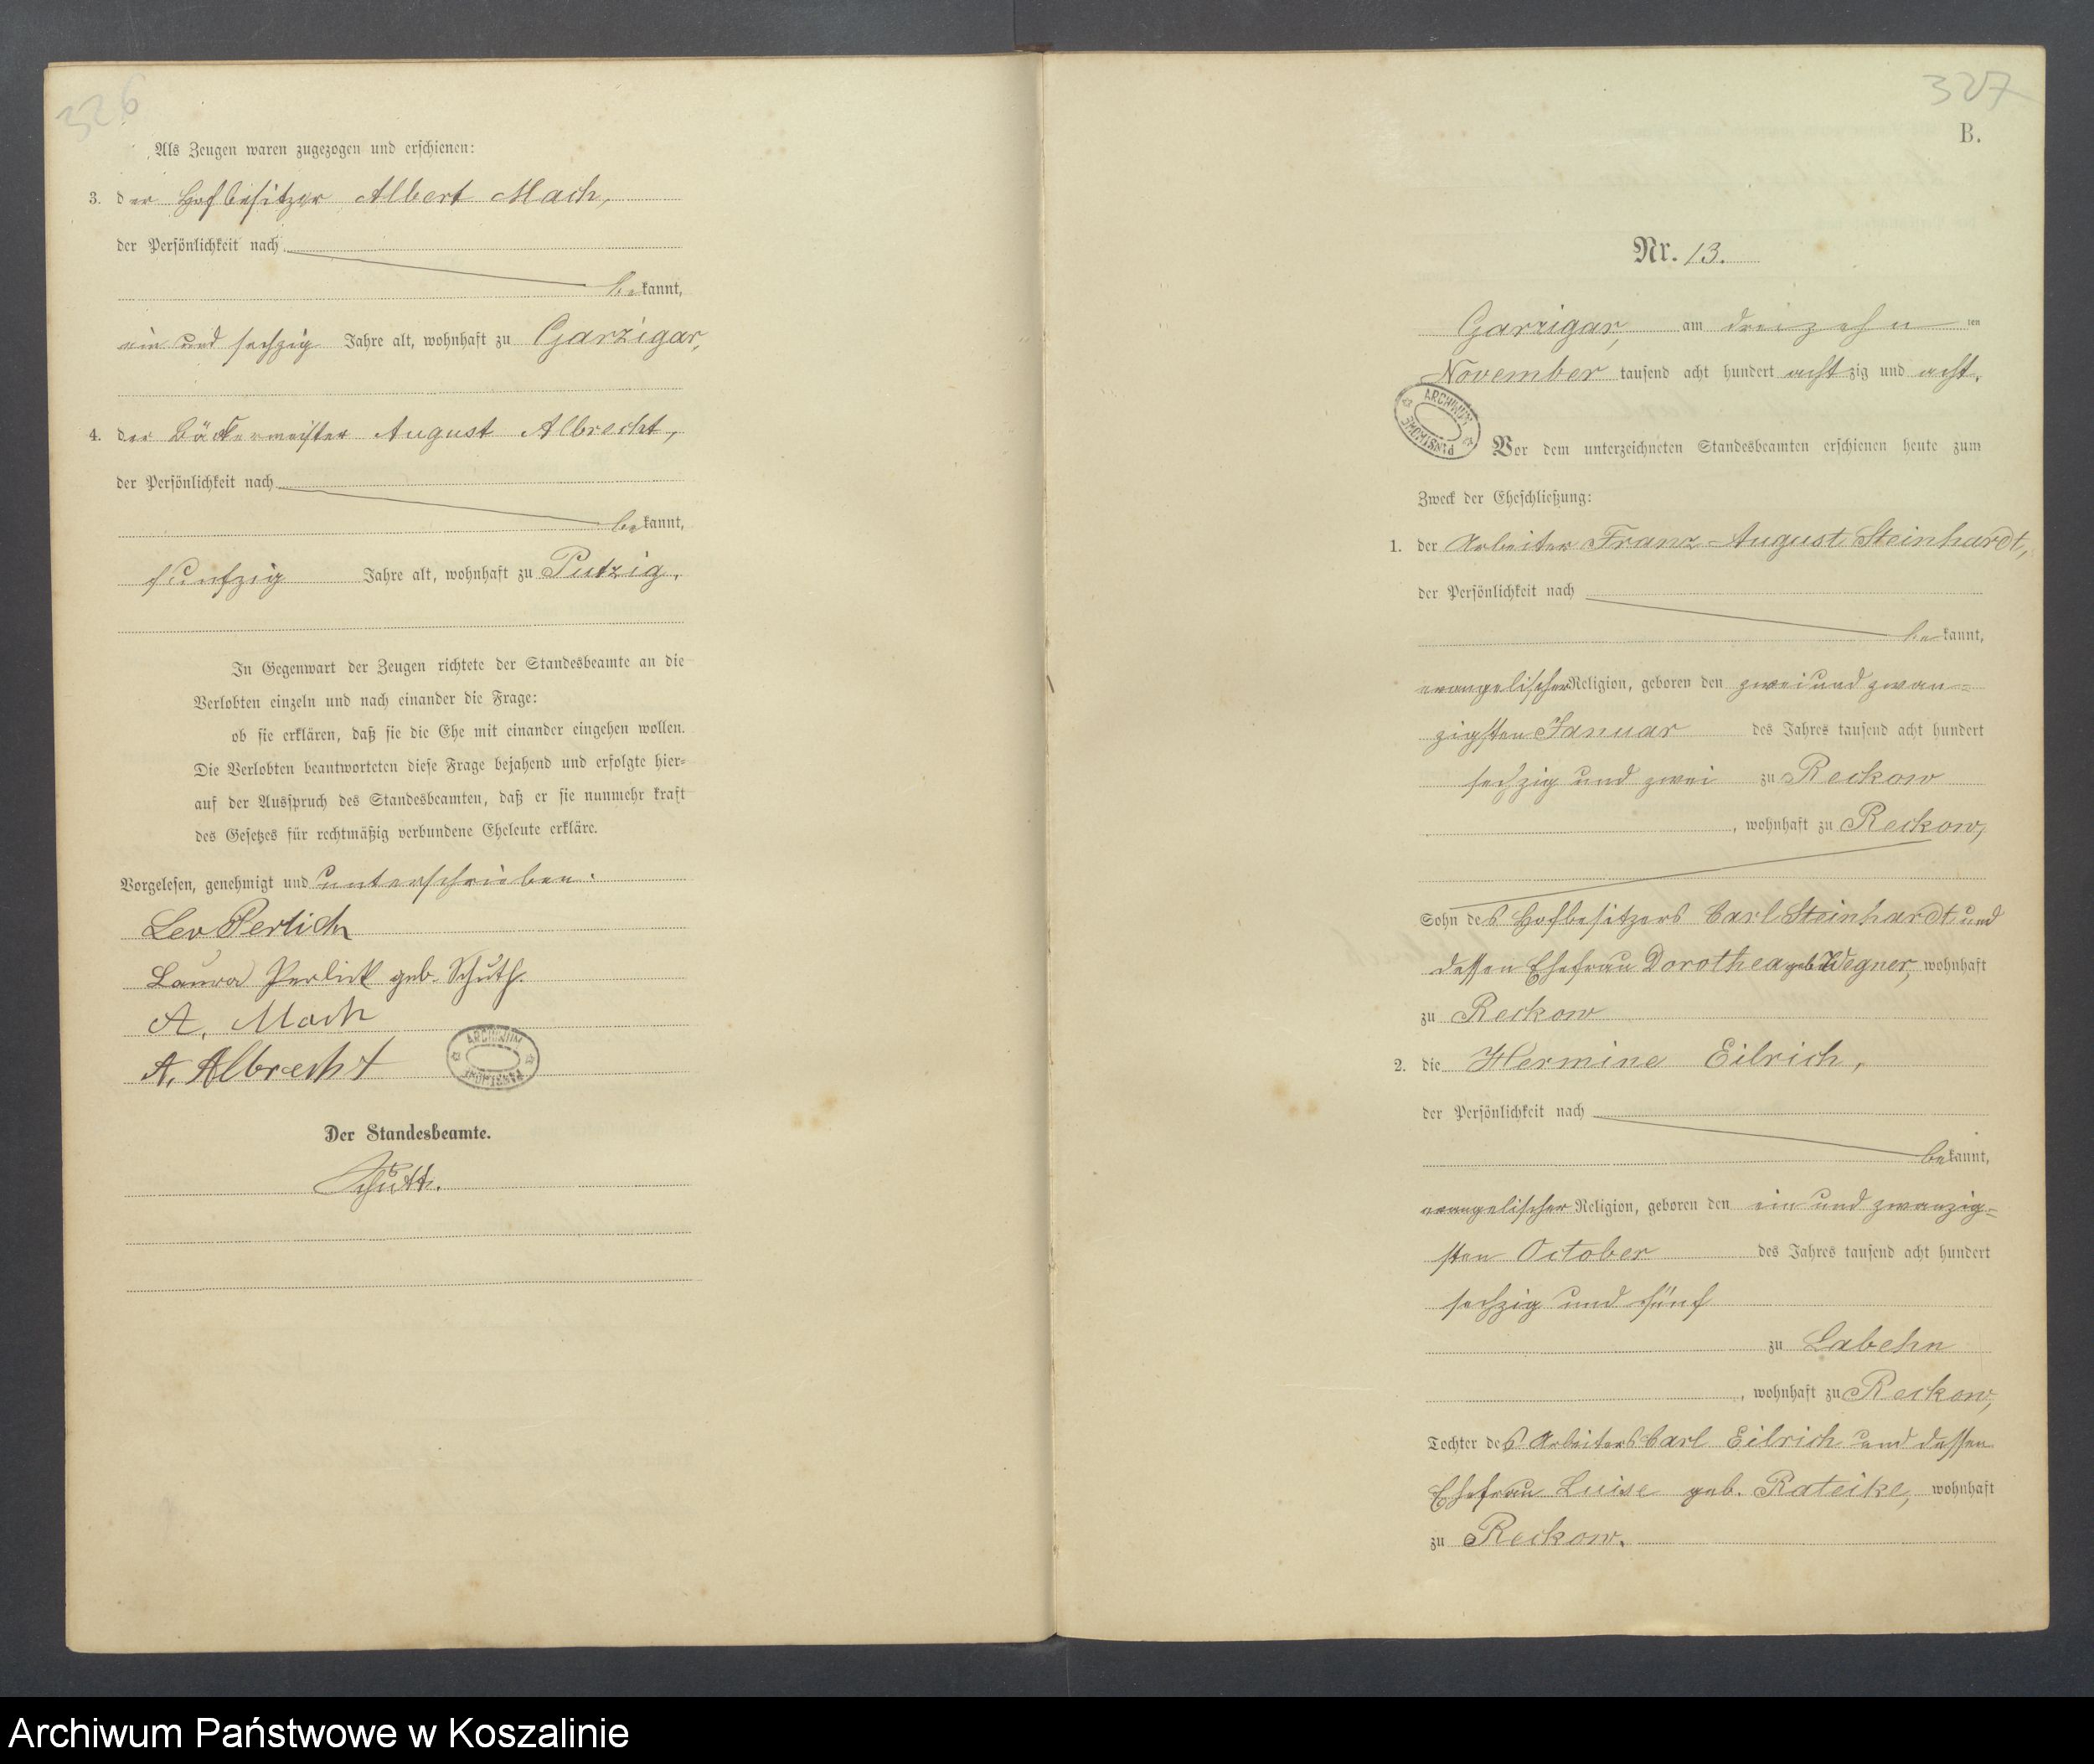 326
Als Zeugen waren zugezogen und erschienen:
3. der Hofbesitzer Albert Mach,
der Persönlichkeit nach
bekannt,
ein und sechzig Jahre alt, wohnhaft zu Garzigar,
4. der Bäckermeister August Albrecht,
der Persönlichkeit nach
bekannt,
fünfzig Jahre alt, wohnhaft zu Putzig.
In Gegenwart der Zeugen richtete der Standesbeamte an die
Verlobten einzeln und nach einander die Frage:
ob sie erklären, daß sie die Ehe mit einander eingehen wollen.
Die Verlobten beantworteten diese Frage bejahend und erfolgte hier=
auf der Ausspruch des Standesbeamten, daß er sie nunmehr kraft
des Gesetzes für rechtmäßig verbundene Eheleute erkläre.
Vorgelesen, genehmigt und unterschrieben.
Leo Perlick
Laura Perlick geb. Schüth.
A. Mach
A. Albrecht
ARCHIWUM PAŃSTWOWE
Der Standesbeamte.
Schütt.
327
B.
Nr. 13.
Garzigar, am dreizehn ten
November tausend acht hundert achtzig und acht.
ARCHIWUM PAŃSTWOWE
Vor dem unterzeichneten Standesbeamten erschienen heute zum
Zweck der Eheschließung:
1. der Arbeiter Franz August Steinhardt,
der Persönlichkeit nach
bekannt,
evangelischer Religion, geboren den zwei und zwan=
zigsten Januar des Jahres tausend acht hundert
sechzig und zwei zu Reckow
, wohnhaft zu Reckow,
Sohn des Hofbesitzers Carl Steinhardt und
dessen Ehefrau Dorothea geb. Wegner, wohnhaft
zu Reckow
2. die Hermine Eilrich,
der Persönlichkeit nach
bekannt,
evangelischer Religion, geboren den ein und zwanzig=
sten October des Jahres tausend acht hundert
sechzig und fünf
zu Labehn
, wohnhaft zu Reckow,
Tochter des Arbeiters Carl Eilrich und dessen
Ehefrau Luise geb. Rateike, wohnhaft
zu Reckow.
Archiwum Państwowe w Koszalinie